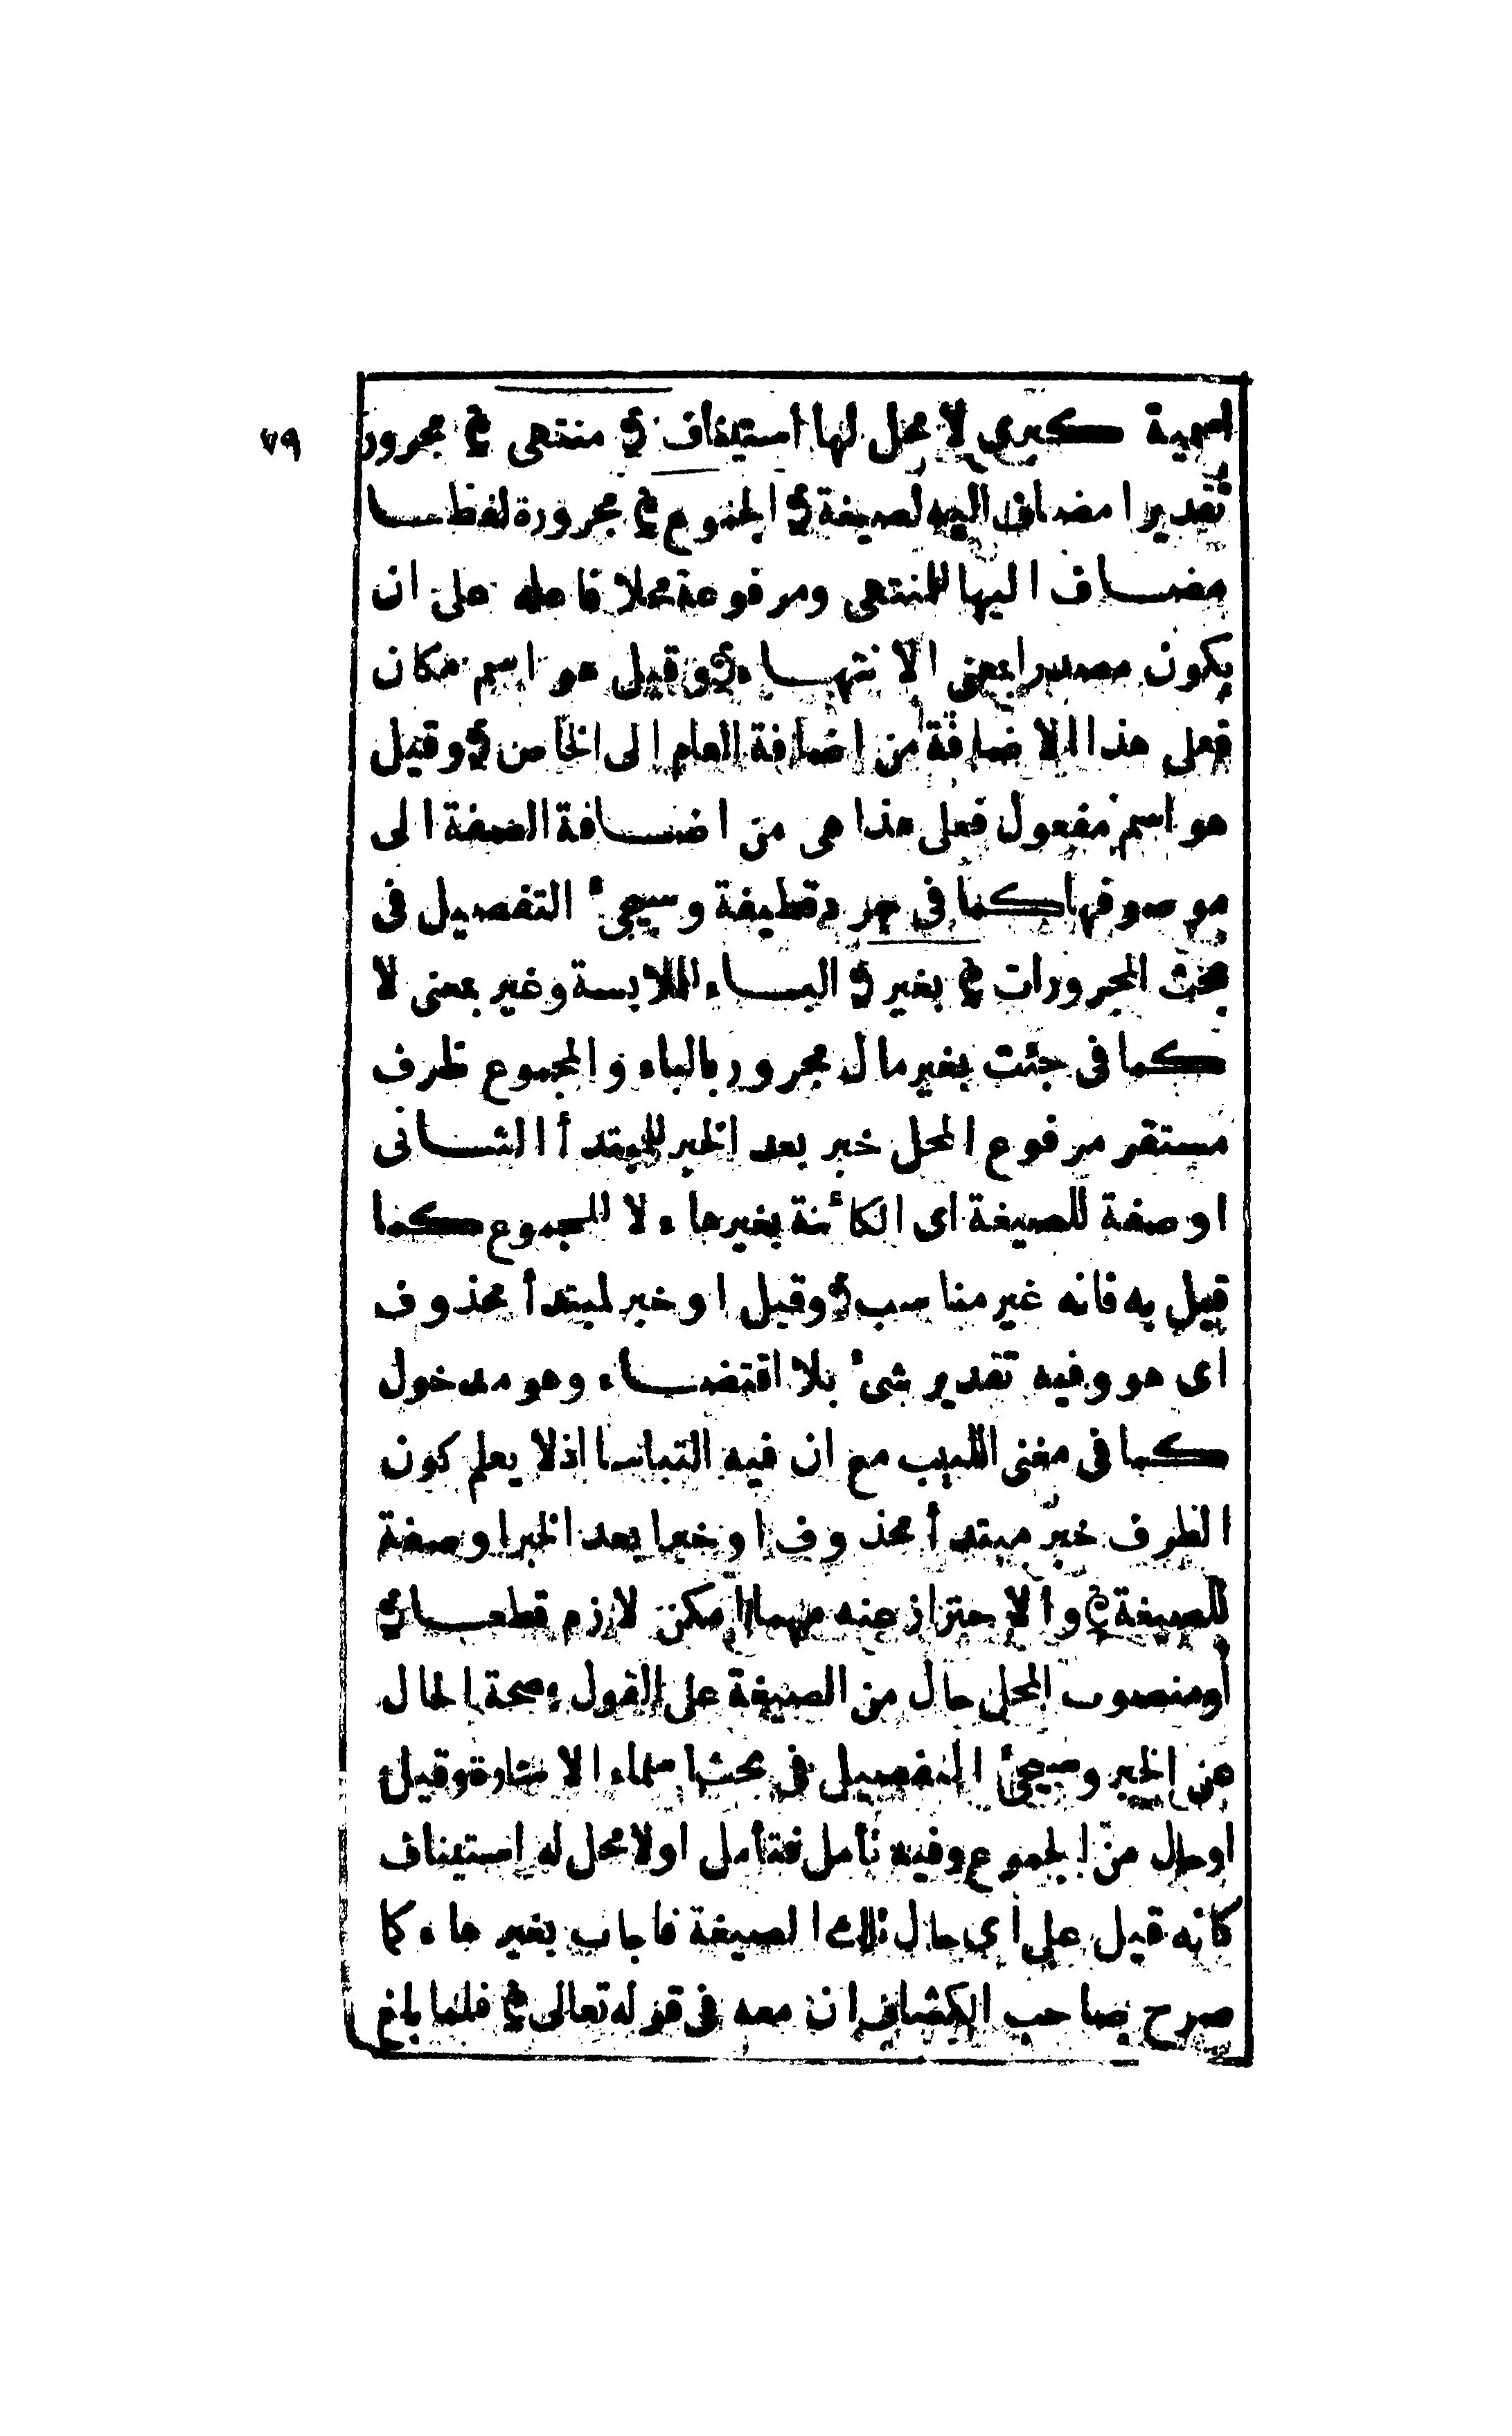 ٧٩
اسمية كبرى لا محل لها استيناف ﴿ منتهى ﴾ مجرور
تقديرا مضاف اليه لصيغة ﴿ الجموع ﴾ مجرورة لفظا
مضاف اليها للمنتهى ومرفوعة محلا فاعله على ان
يكون مصدرا بمعنى الانتهاء وقيل هو اسم مكان
فعلى هذا الاضافة من اضافة العام الى الخاص وقيل
هو اسم مفعول فعلى هذا هى من اضافة الصفة الى
موصوفها كما فى جرد قطيفة وسيجىء التفصيل فى
بحث المجرورات ﴿ بغير ﴾ الباء للملابسة وغير بمعنى لا
كما فى جئت بغير مال مجرور بالباء والمجموع ظرف
مستقر مرفوع المحل خبر بعد الخبر للمبتدأ الثانى
او صفة للصيغة اى الكائنة بغيرهاء لا للجموع كما
قيل به فانه غير مناسب وقيل او خبر لمبتدأ محذوف
اى هو وفيه تقدير شىء بلا اقتضاء وهو مدخول
كما فى مغنى اللبيب مع ان فيه التباسا اذ لا يعلم كون
الظرف خبر مبتدأ محذوف او خبرا بعد الخبر او صفة
للصيغة والاحتراز عنه مهما امكن لازم قطعا
أو منصوب المحل حال من الصيغة على القول بصحة الحال
عن الخبر وسيجىء التفصيل فى بحث اسماء الاشارة وقيل
او حال من الجموع وفيه تأمل فتأمل او لا محل له استيناف
كانه قيل على أى حال تلك الصيغة فاجاب بغير هاء كما
صرح صاحب الكشاف ان معه فى قوله تعالى ﴿ فلما بلغ